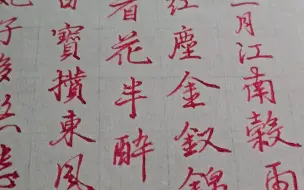 月江南穀雨
紅塵金釵錦
看花半醉
寶攢東風
子多